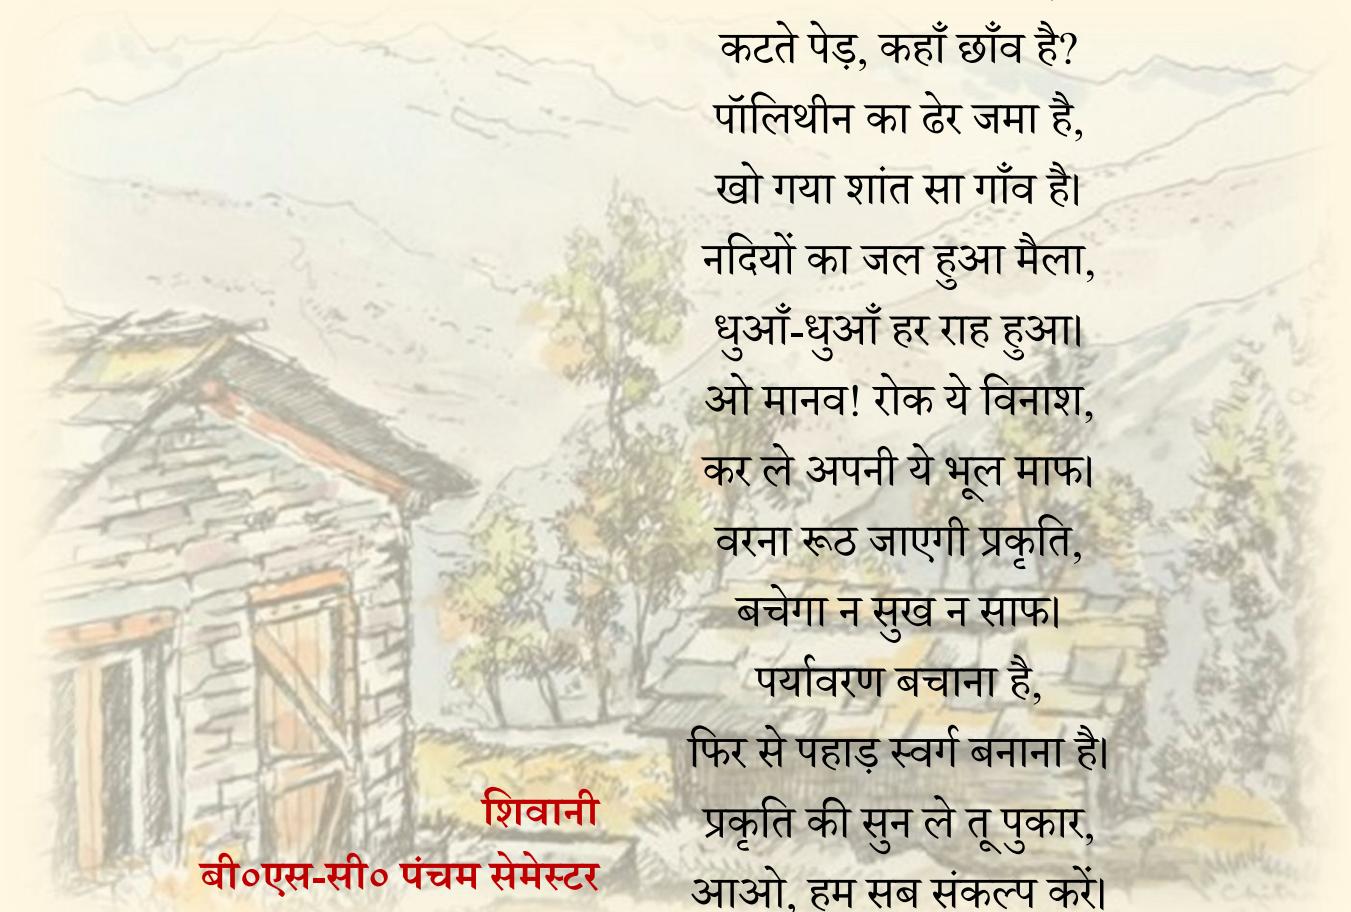 कटते पेड़, कहाँ छाँव है?
पॉलिथीन का ढेर जमा है,
खो गया शांत सा गाँव है।
नदियों का जल हुआ मैला,
धुआँ-धुआँ हर राह हुआ।
ओ मानव! रोक ये विनाश,
कर ले अपनी ये भूल माफ।
वरना रूठ जाएगी प्रकृति,
बचेगा न सुख न साफ।
पर्यावरण बचाना है,
फिर से पहाड़ स्वर्ग बनाना है।
प्रकृति की सुन ले तू पुकार,
आओ, हम सब संकल्प करें।
शिवानी
बी०एस-सी० पंचम सेमेस्टर